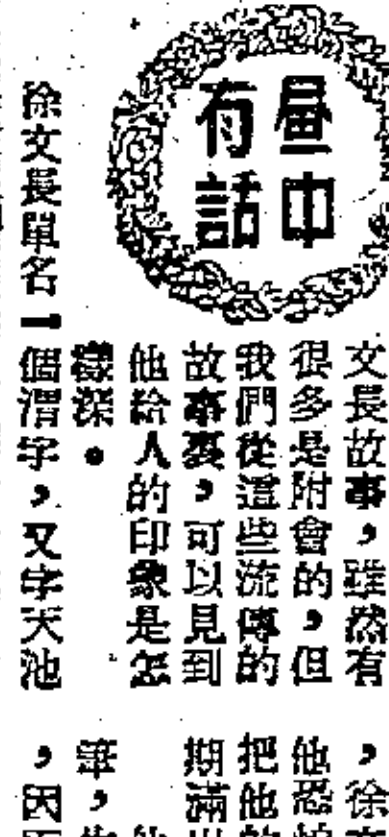 畫中
有話
文長故事，雖然有
很多是附會的，但
我們從這些流傳的
故事裏，可以見到
他給人的印象是怎
樣深。
徐文長單名一個渭字，又字天池
，徐
他恐
把他的
期滿
筆，
，因